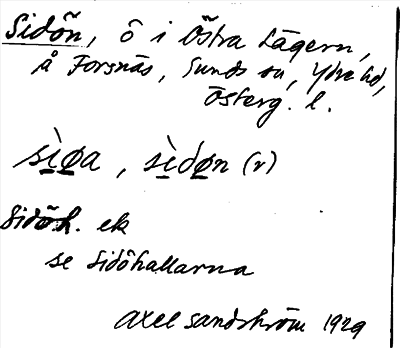 Sidön, ö i Östra Lägern,
å Forsnäs, Sunds sn, Ydre hd,
Österg. l.
sìøa, sìdøn (r)
Sidöh. ek
se Sidöhallarna
Axel Sandström 1929